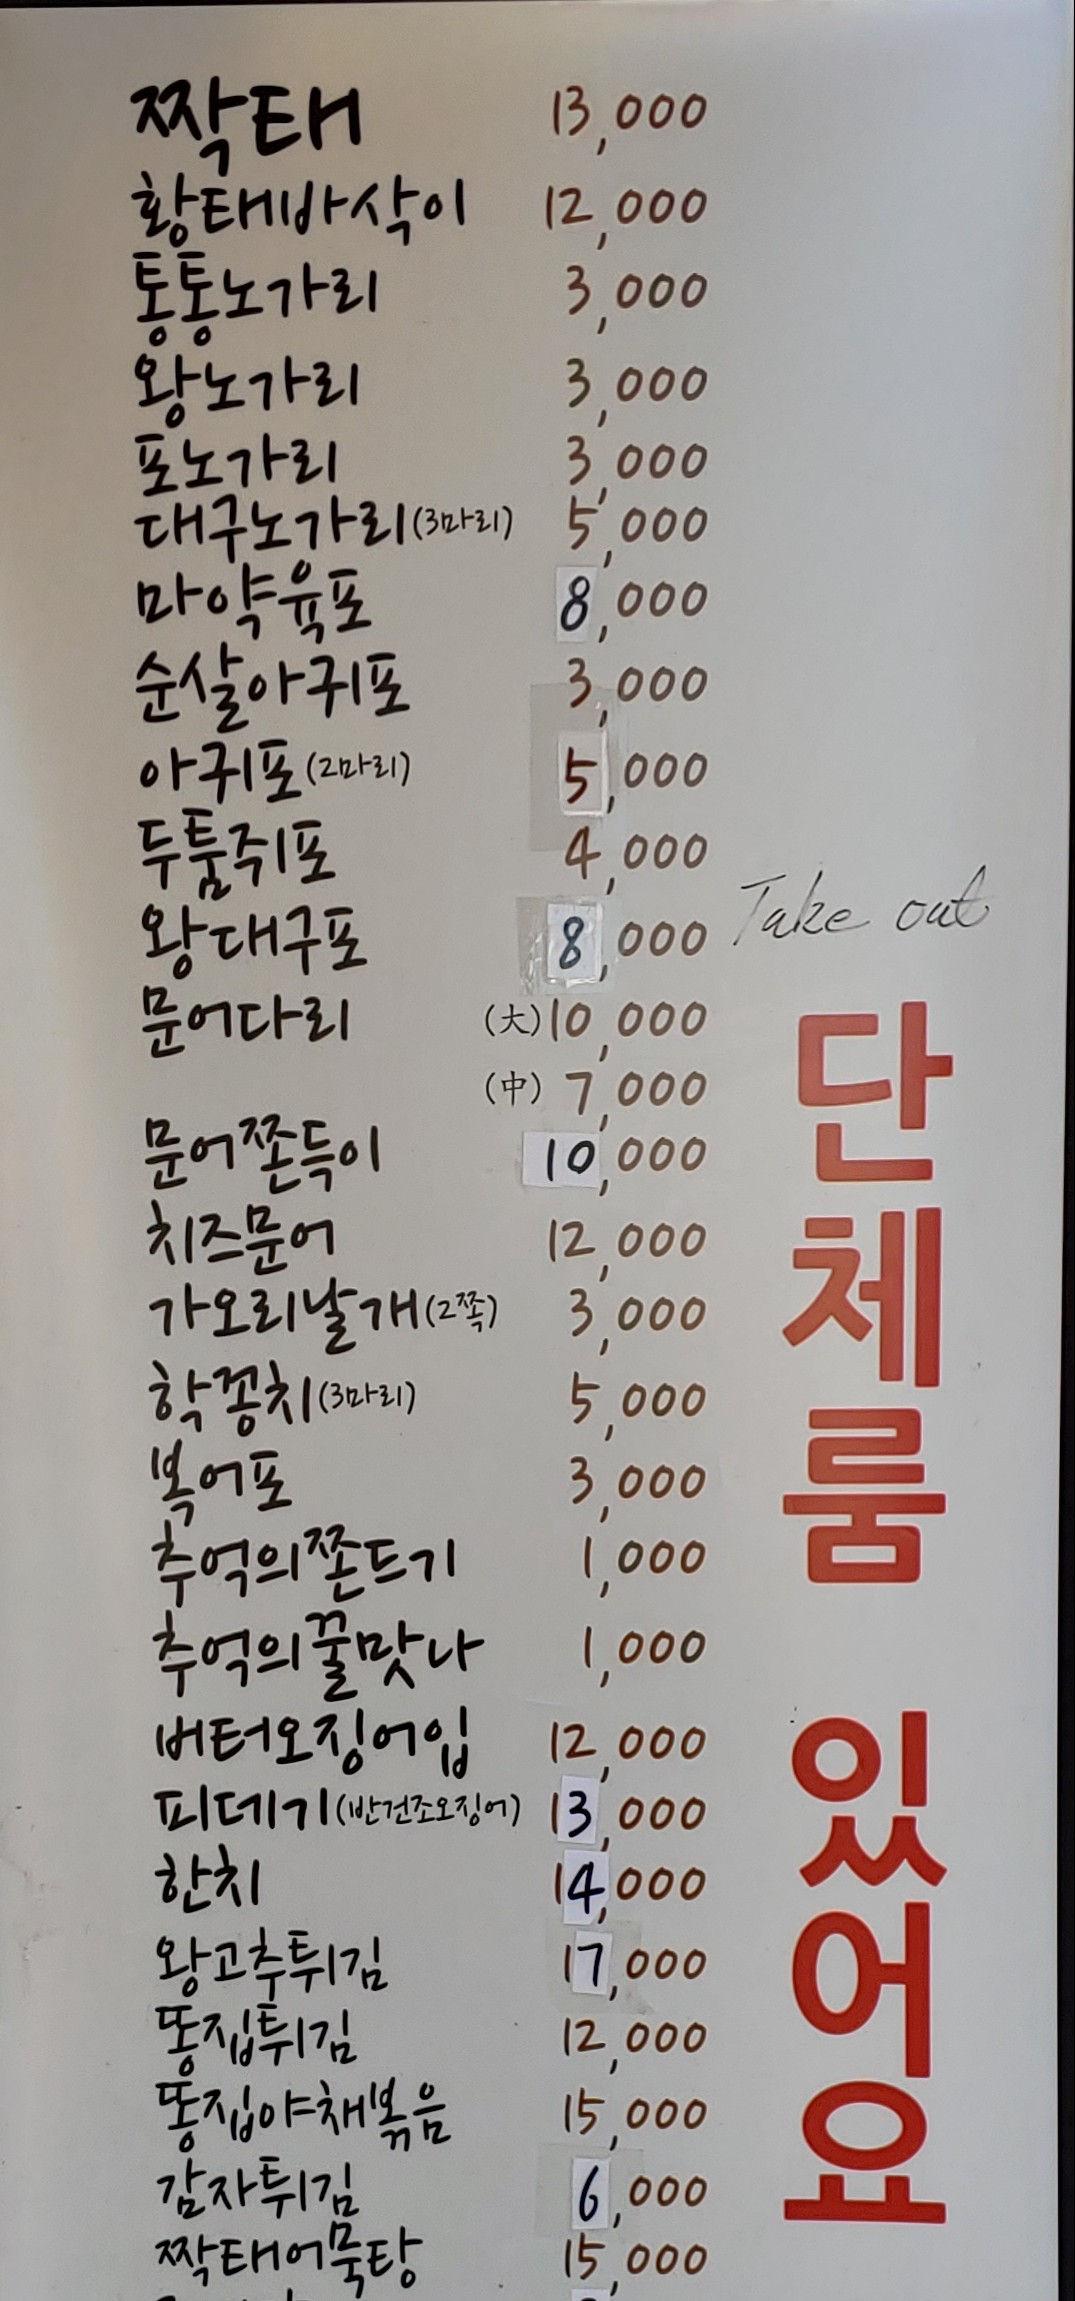 짝태 13,000
황태바삭이 12,000
통통노가리 3,000
왕노가리 3,000
포노가리 3,000
대구노가리(3마리) 5,000
마약육포 8,000
순살아귀포 3,000
아귀포(2마리) 5,000
두툼쥐포 4,000
왕대구포 8,000
문어다리 (大)10,000
(中) 7,000
문어쫀득이 10,000
치즈문어 12,000
가오리날개(2쪽) 3,000
학꽁치(3마리) 5,000
복어포 3,000
추억의쫀드기 1,000
추억의꿀맛나 1,000
버터오징어입 12,000
피데기(반건조오징어) 13,000
한치 14,000
왕고추튀김 17,000
똥집튀김 12,000
똥집야채볶음 15,000
감자튀김 6,000
짝태어묵탕 15,000
Take out
단체룸 있어요